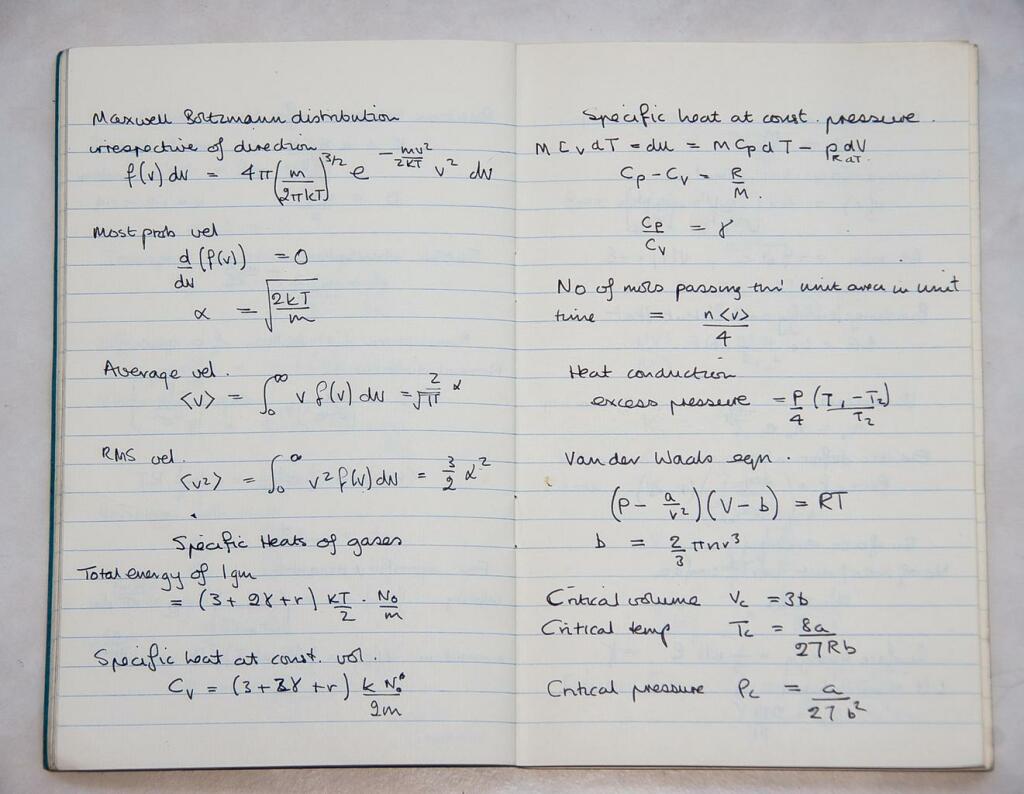 Maxwell Boltzmann distribution
irrespective of direction
f(v) dv = 4π(m/2πkT)^3/2 e^-mv²/2kT v² dv
Most prob vel
d/dv (f(v)) = 0
α = √(2kT/m)
Average vel.
<v> = ∫₀^∞ v f(v) dv = 2/√π α
RMS vel.
<v²> = ∫₀^∞ v² f(v) dv = 3/2 α²
Specific Heats of gases
Total energy of 1gm
= (3 + 2γ + r) kT/2 . N₀/m
Specific heat at const. vol.
Cv = (3 + 2γ + r) k N₀/2m
Specific heat at const. pressure.
M Cv dT = du = M Cp dT - p dV
R dT.
Cp - Cv = R/M.
Cp/Cv = γ
No of mols passing thr' unit area in unit
time = n<v>/4
Heat conduction
excess pressure = P/4 (T₁ - T₂)/T₂
Van der Waals eqn.
(P - a/v²)(V - b) = RT
b = 2/3 πnv³
Critical volume Vc = 3b
Critical temp Tc = 8a/27Rb
Critical pressure Pc = a/27b²